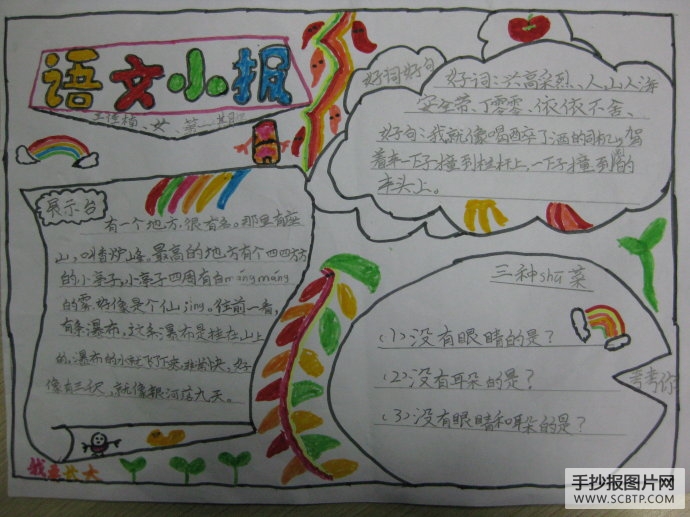 语文小报
女、第一期
好词好句
好词:兴高采烈、人山人海
安全带、丁零零、依依不舍、
好句:我就像喝醉了酒的司机,驾
着车一下子撞到栏杆上,一下子撞到别的
车头上。
展示台
有一个地方,很有名。那里有座
山,叫香炉峰。最高的地方有个四四方方
的小亭子,小亭子四周有白máng máng
的雾,好像是个仙jìng。往前一看,
有条瀑布,这条瀑布是挂在山上
的,瀑布的小就飞了下来,非常快,好
像有三千尺,就像银河落九天。
我要长大
三种shū菜
(1)没有眼睛的是?
(2)没有耳朵的是?
(3)没有眼睛和耳朵的是?
考考你
手抄报图片网
WWW.SCBTP.COM